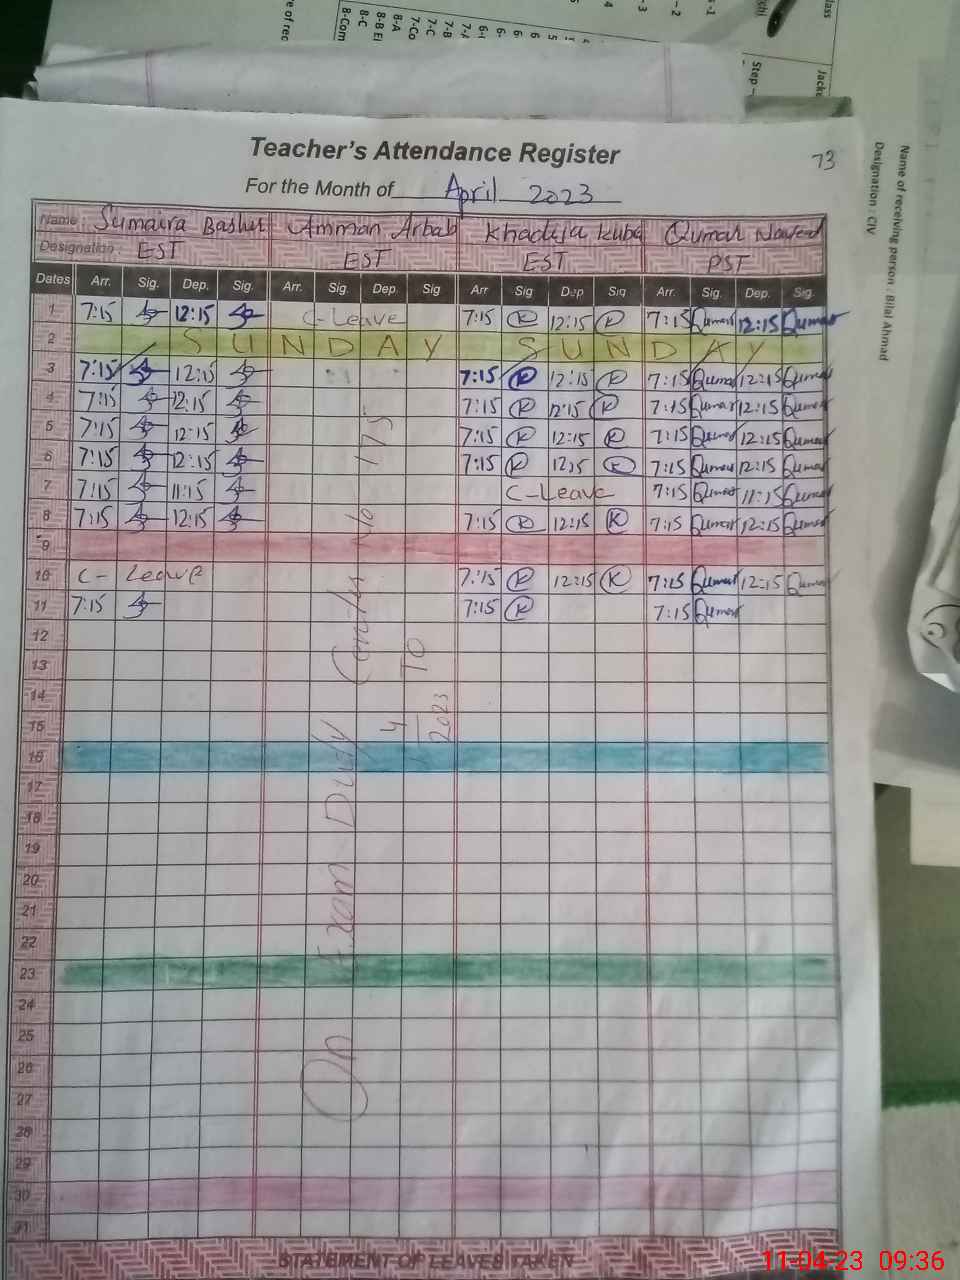 lass
-1
-2
-3
4
5
6
6
6-
7-A
7-B
7-C
7-Co
8-A
8-B El
8-C
8-Com
e of rec
Step -
Jacke
Name of receiving person : Bilal Ahmad
Designation : CIV
73
Teacher's Attendance Register
For the Month of April 2023
Name: Sumaira Bashir Amman Arbab Khadija Kubq Qumar Naveed
Designation: EST EST EST PST
Dates Arr. Sig. Dep. Sig. Arr. Sig. Dep. Sig Arr Sig Dep Sig Arr. Sig. Dep. Sig.
1 7:15 12:15 C-Leave 7:15 K 12:15 K 7:15 Qumar 12:15 Qumar
2 SUNDAY SUNDAY
3 7:15 12:15 7:15 K 12:15 K 7:15 Qumar 12:15 Qumar
4 7:15 12:15 7:15 K 12:15 K 7:15 Qumar 12:15 Qumar
5 7:15 12:15 7:15 K 12:15 K 7:15 Qumar 12:15 Qumar
6 7:15 12:15 7:15 K 12:15 K 7:15 Qumar 12:15 Qumar
7 7:15 11:15 C-Leave 7:15 Qumar 11:15 Qumar
8 7:15 12:15 7:15 K 12:15 K 7:15 Qumar 12:15 Qumar
9
10 C- Leave 7:15 K 12:15 K 7:15 Qumar 12:15 Qumar
11 7:15 7:15 K 7:15 Qumar
12
13
14
15
16
17
18
19
20
21
22
23
24
25
26
27
28
29
30
31
On Exam Duty
No 175
4 TO
2023
STATEMENT OF LEAVES TAKEN
11-04-23 09:36